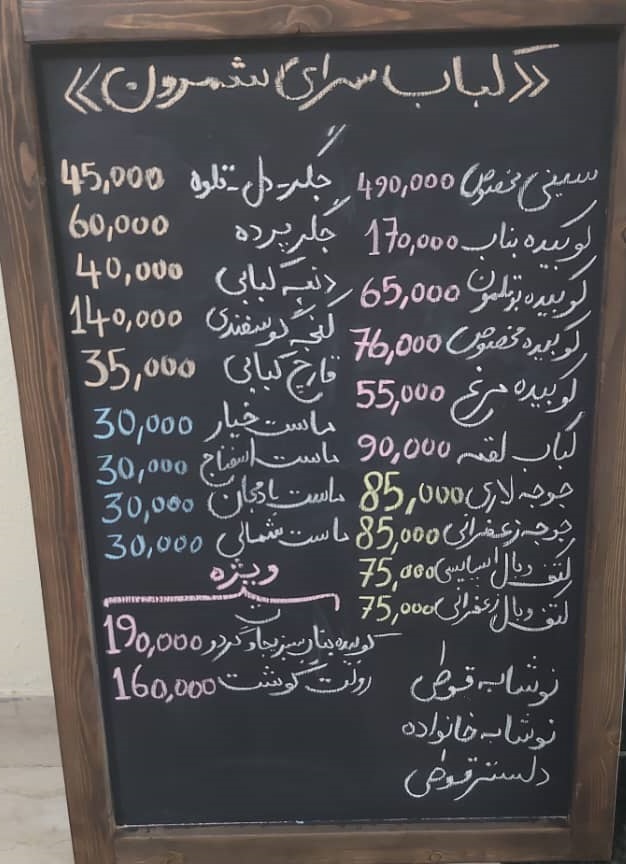 «کباب سرای شمرون»
سینی مخصوص 490,000
کوبیده بناب 170,000
کوبیده بوقلمون 65,000
کوبیده مخصوص 76,000
کوبیده مرغ 55,000
کباب لقمه 90,000
جوجه لاری 85,000
جوجه زعفرانی 85,000
کتف و بال اسپایسی 75,000
کتف و بال زعفرانی 75,000
نوشابه قوطی
نوشابه خانواده
دلستر قوطی
جگر - دل - قلوه 45,000
جگر پرده 60,000
دنبه کبابی 40,000
کنجه گوسفندی 140,000
قارچ کبابی 35,000
ماست خیار 30,000
ماست اسفناج 30,000
ماست بادمجان 30,000
ماست شمالی 30,000
ویژه
کوبیده بناب سبزیجات و گردو 190,000
رولت گوشت 160,000